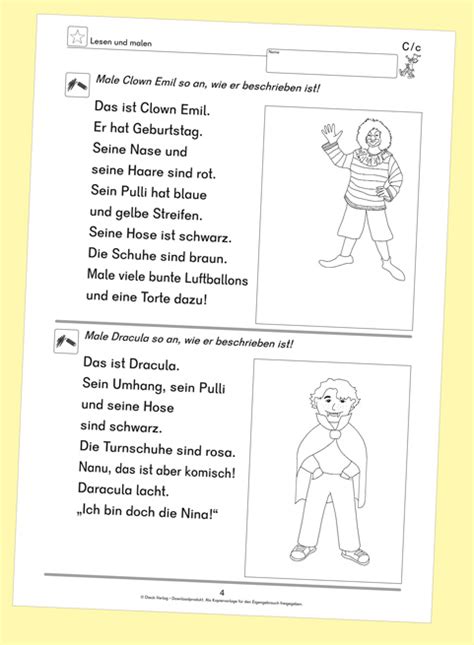 Lesen und malen
Name
C/c
Male Clown Emil so an, wie er beschrieben ist!
Das ist Clown Emil.
Er hat Geburtstag.
Seine Nase und
seine Haare sind rot.
Sein Pulli hat blaue
und gelbe Streifen.
Seine Hose ist schwarz.
Die Schuhe sind braun.
Male viele bunte Luftballons
und eine Torte dazu!
Male Dracula so an, wie er beschrieben ist!
Das ist Dracula.
Sein Umhang, sein Pulli
und seine Hose
sind schwarz.
Die Turnschuhe sind rosa.
Nanu, das ist aber komisch!
Daracula lacht.
„Ich bin doch die Nina!“
4
Verlag – Downloadprodukt. Als Kopiervorlage für den Eigengebrauch freigegeben.